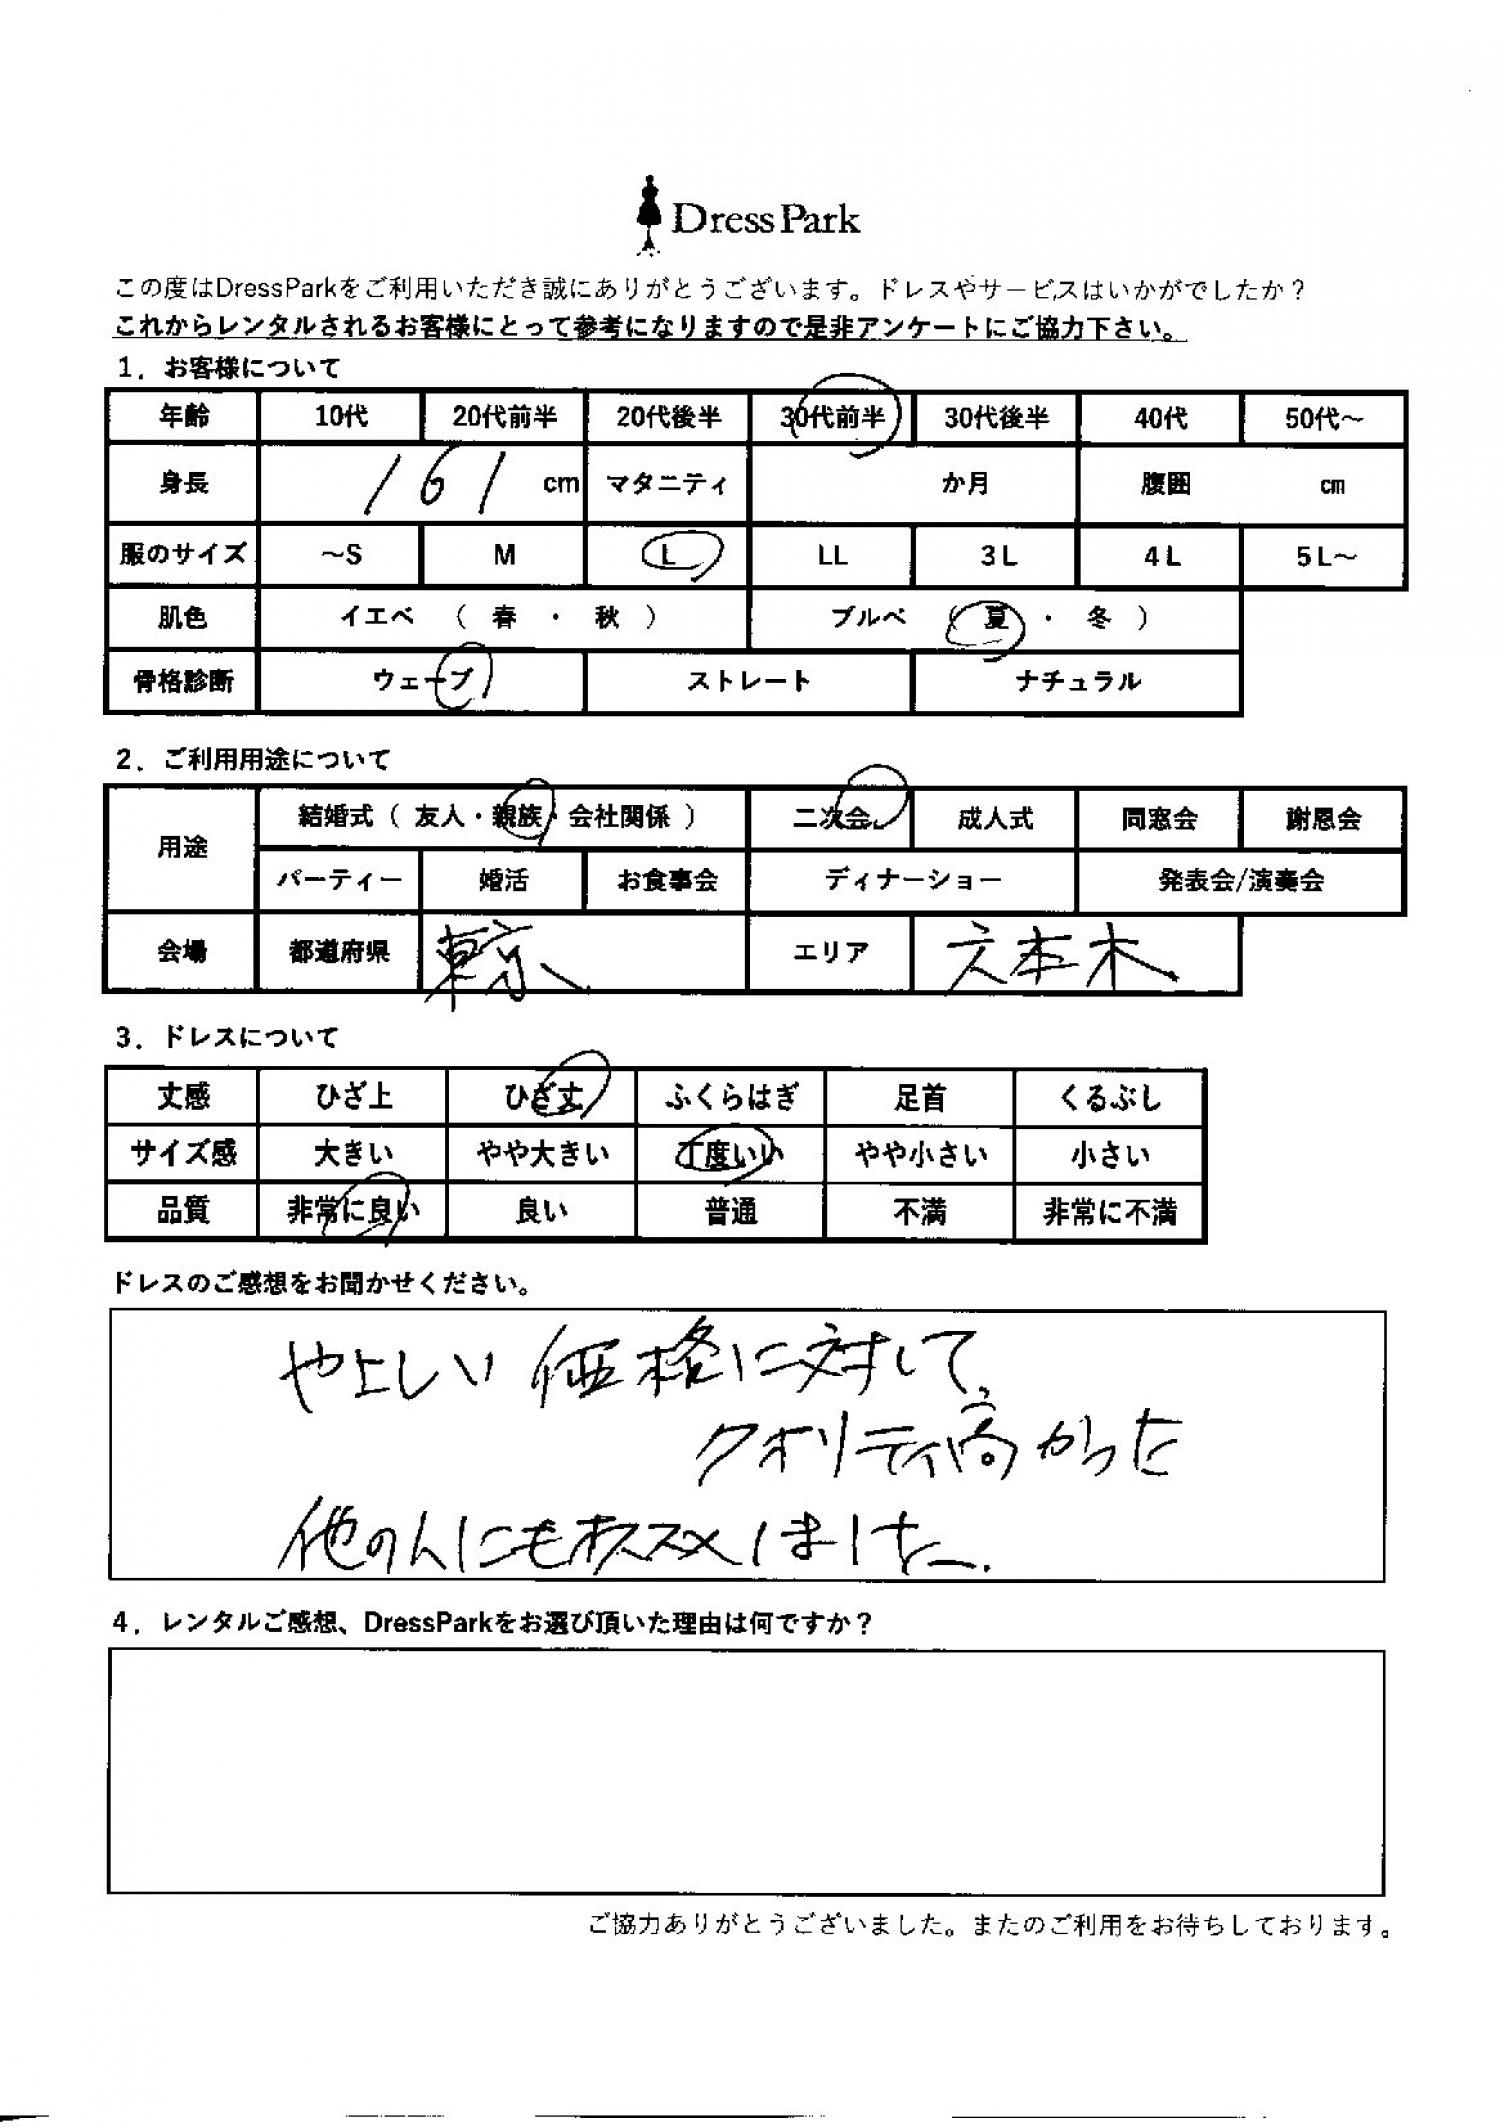 Dress Park
この度はDressParkをご利用いただき誠にありがとうございます。ドレスやサービスはいかがでしたか？
これからレンタルされるお客様にとって参考になりますので是非アンケートにご協力下さい。
1．お客様について
年齢 10代 20代前半 20代後半 30代前半 30代後半 40代 50代～
身長 161 cm マタニティ か月 腹囲 cm
服のサイズ ～S M L LL 3L 4L 5L～
肌色 イエベ （ 春 ・ 秋 ） ブルベ （ 夏 ・ 冬 ）
骨格診断 ウェーブ ストレート ナチュラル
2．ご利用用途について
用途 結婚式（ 友人・親族・会社関係 ） 二次会 成人式 同窓会 謝恩会
パーティー 婚活 お食事会 ディナーショー 発表会/演奏会
会場 都道府県 東京 エリア 六本木
3．ドレスについて
丈感 ひざ上 ひざ丈 ふくらはぎ 足首 くるぶし
サイズ感 大きい やや大きい 丁度いい やや小さい 小さい
品質 非常に良い 良い 普通 不満 非常に不満
ドレスのご感想をお聞かせください。
やさしい価格に対して、
クオリティ高かった
他の人にもオススメしました.
4．レンタルご感想、DressParkをお選び頂いた理由は何ですか？
ご協力ありがとうございました。またのご利用をお待ちしております。